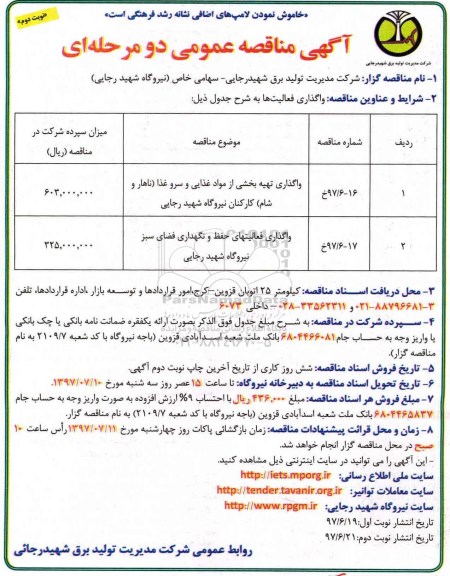 «خاموش نمودن لامپ‌های اضافی نشانه رشد فرهنگی است»
«نوبت دوم»
شرکت مدیریت تولید برق شهیدرجایی
آگهی مناقصه عمومی دو مرحله‌ای
۱- نام مناقصه گزار: شرکت مدیریت تولید برق شهیدرجایی- سهامی خاص (نیروگاه شهید رجایی)
۲- شرایط و عناوین مناقصه: واگذاری فعالیت‌ها به شرح جدول ذیل:
ردیف شماره مناقصه موضوع مناقصه میزان سپرده شرکت در مناقصه (ریال)
۱ ۹۷/۶-۱۶خ واگذاری تهیه بخشی از مواد غذایی و سرو غذا (ناهار و شام) کارکنان نیروگاه شهید رجایی ۶۰۳,۰۰۰,۰۰۰
۲ ۹۷/۶-۱۷خ واگذاری فعالیتهای حفظ و نگهداری فضای سبز نیروگاه شهید رجایی ۳۲۵,۰۰۰,۰۰۰
۳- محل دریافت اسناد مناقصه: کیلومتر ۲۵ اتوبان قزوین-کرج،امور قراردادها و توسعه بازار ،اداره قراردادها، تلفن
۳-۸۸۷۹۶۶۸۱-۰۲۱ و ۳۳۵۶۲۳۱۱-۰۲۸ – داخلی ۶۰۷۳
۴- سپرده شرکت در مناقصه: به شرح مبلغ جدول فوق الذکر بصورت ارائه یکفقره ضمانت نامه بانکی یا چک بانکی
یا واریز وجه به حساب جام ۶۸۰۴۴۶۶۰۸۱ بانک ملت شعبه اسدآبادی قزوین (باجه نیروگاه با کد شعبه ۲۱۰۹/۷ به نام
مناقصه گزار).
۵- تاریخ فروش اسناد مناقصه: شش روز کاری از تاریخ آخرین چاپ نوبت دوم آگهی.
۶- تاریخ تحویل اسناد مناقصه به دبیرخانه نیروگاه: تا ساعت ۱۵ عصر روز سه شنبه مورخ ۱۳۹۷/۰۷/۱۰.
۷- مبلغ فروش هر اسناد مناقصه: مبلغ ۴۳۶,۰۰۰ ریال با احتساب ۹٪ ارزش افزوده به صورت واریز وجه به حساب جام
۶۸۰۴۴۶۵۸۳۷ بانک ملت شعبه اسدآبادی قزوین (باجه نیروگاه با کد شعبه ۲۱۰۹/۷) به نام مناقصه گزار.
۸- زمان و محل قرائت پیشنهادات مناقصه: زمان بازگشائی پاکات روز چهارشنبه مورخ ۱۳۹۷/۰۷/۱۱ رأس ساعت ۱۰
صبح در محل مناقصه گزار انجام خواهد شد.
- این آگهی را می توانید در سایت اینترنتی ذیل مشاهده کنید.
سایت ملی اطلاع رسانی: http://iets.mporg.ir
سایت معاملات توانیر: http://tender.tavanir.org.ir
سایت نیروگاه شهید رجایی: http://www.rpgm.ir
تاریخ انتشار نوبت اول:۹۷/۶/۱۹
تاریخ انتشار نوبت دوم:۹۷/۶/۲۱
روابط عمومی شرکت مدیریت تولید برق شهیدرجائی